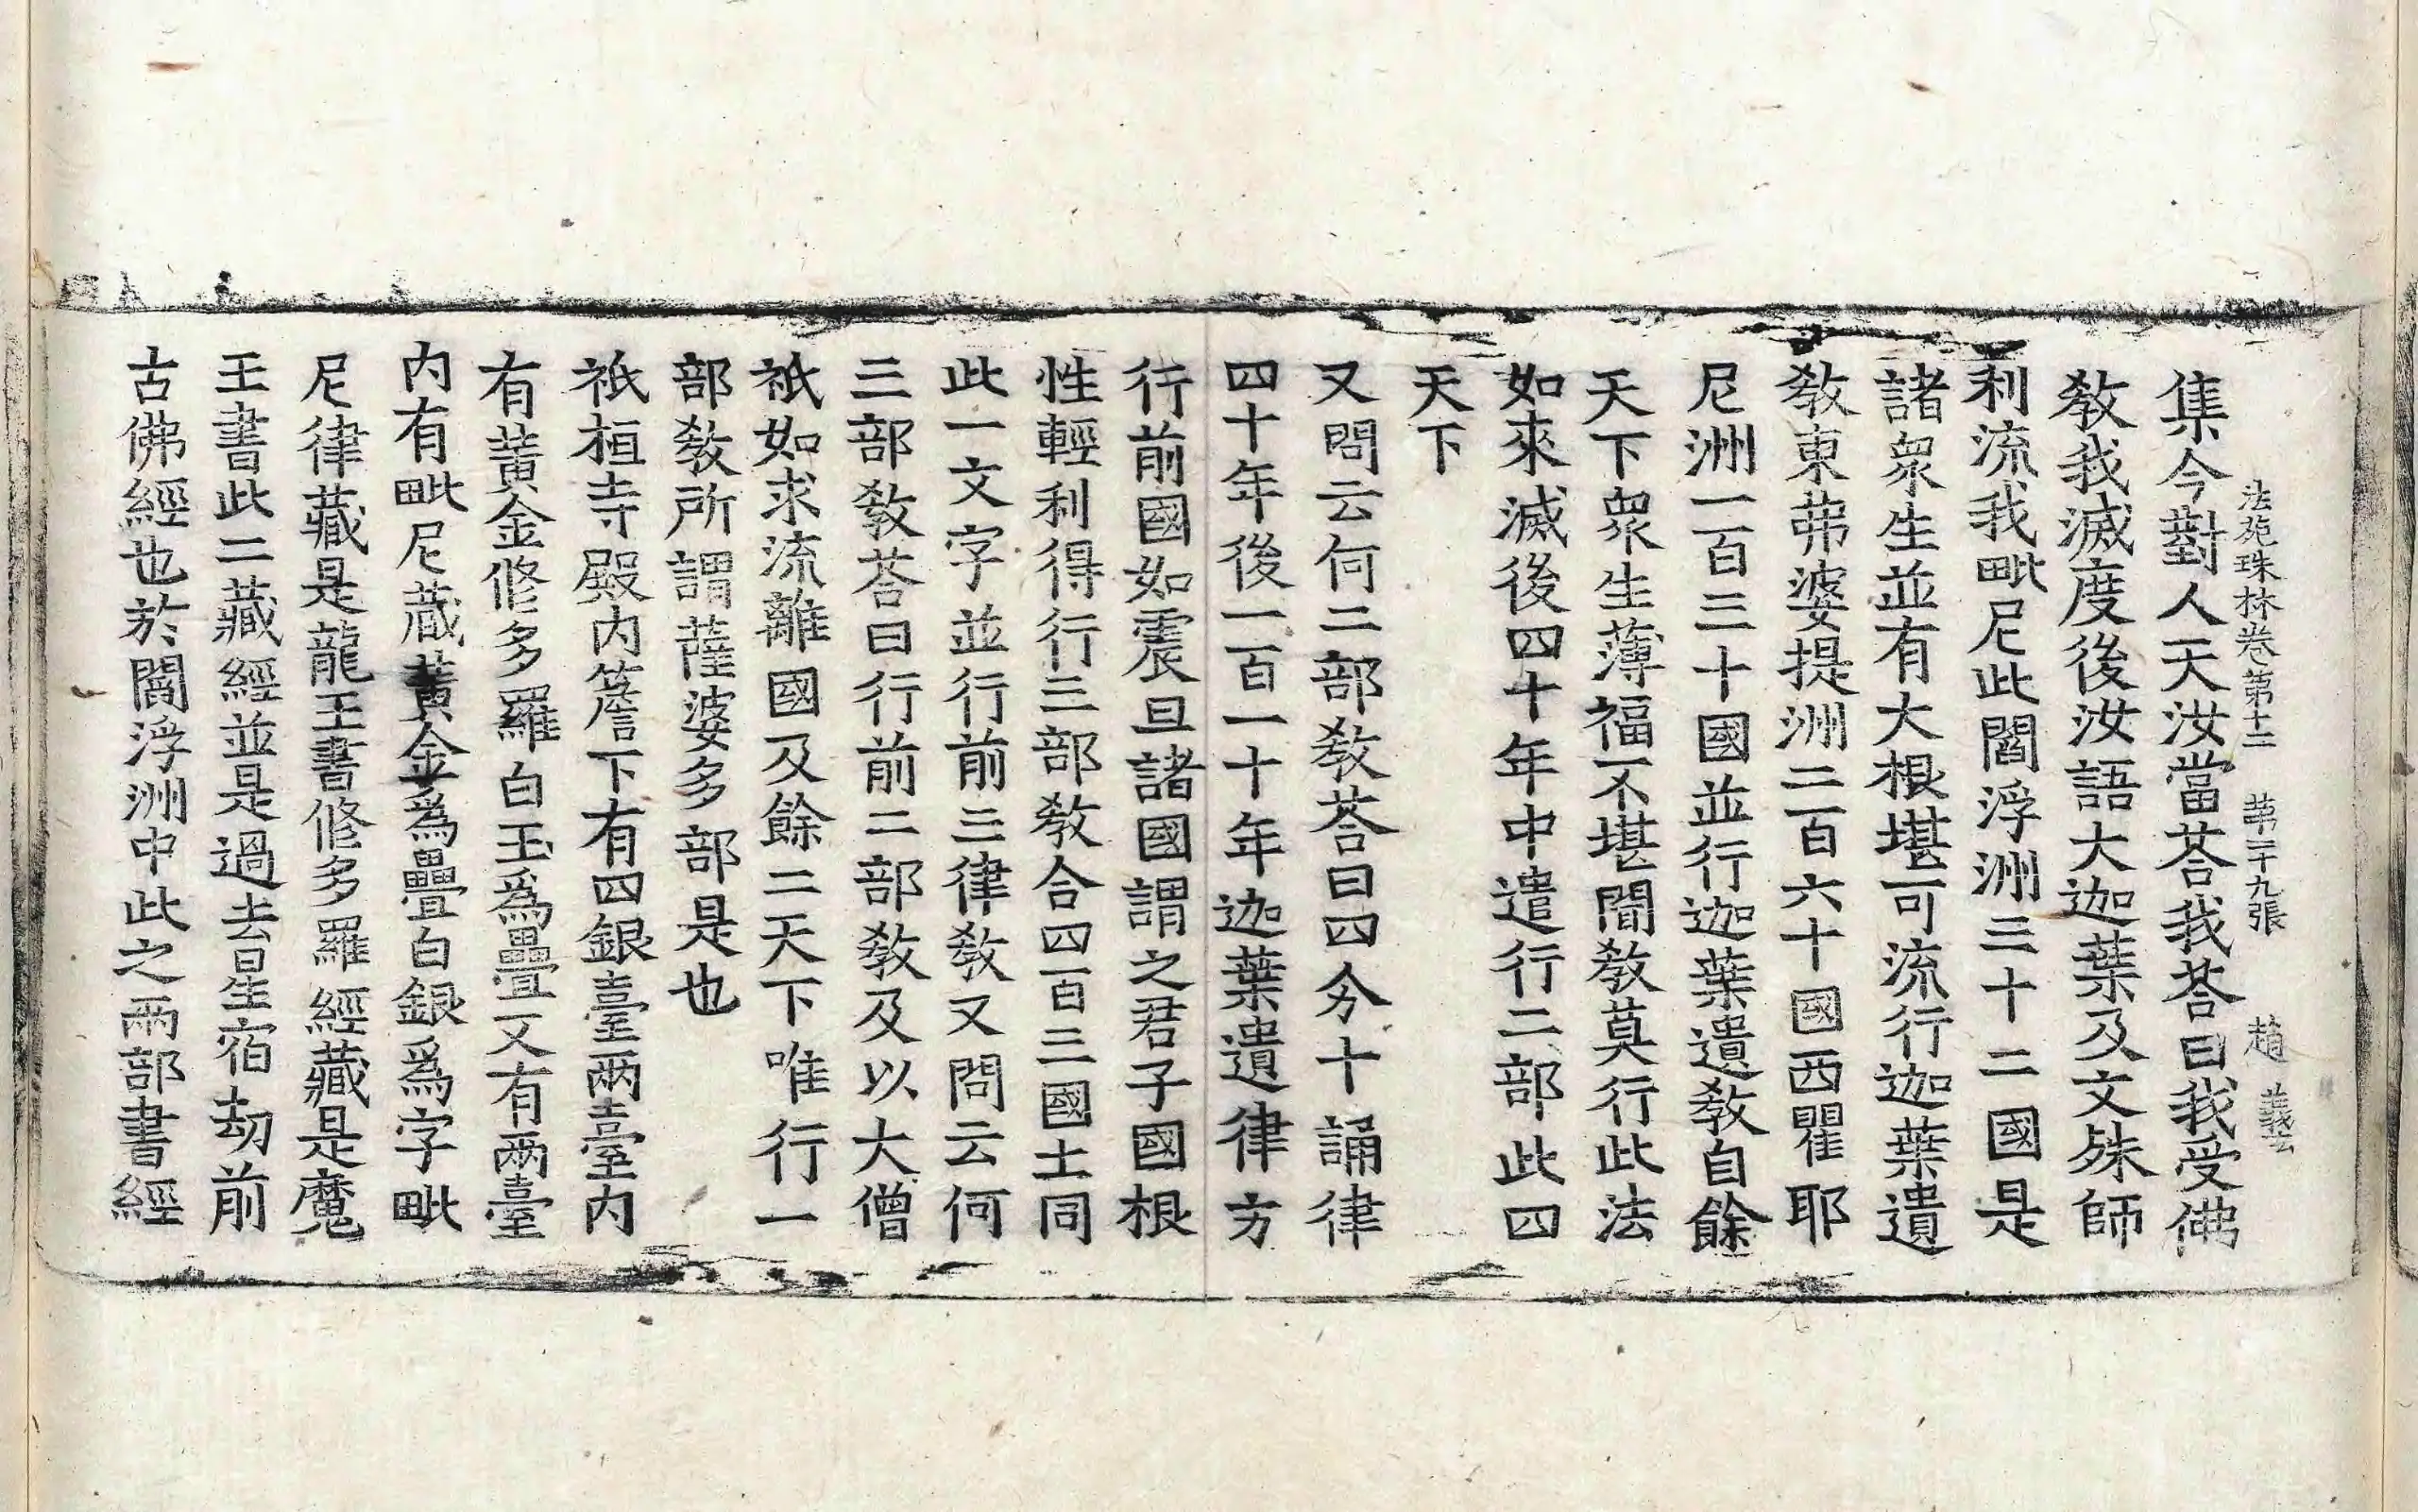 法苑珠林卷第十二 第二十九張 趙 義
集今對人天汝當荅我荅曰我受佛
敎我滅度後汝語大迦葉及文殊師
利流我毗尼此閻浮洲三十二國是
諸衆生並有大根堪可流行迦葉遺
敎東弗婆提洲二百六十國西瞿耶
尼洲一百三十國並行迦葉遺敎自餘
天下衆生薄福不堪聞敎莫行此法
如來滅後四十年中遣行二部此四
天下
又問云何二部敎荅曰四分十誦律
四十年後一百一十年迦葉遺律方
行前國如震旦諸國謂之君子國根
性輕利得行三部敎合四百三國土同
此一文字並行前三律敎又問云何
三部敎荅曰行前二部敎及以大僧
祇如求流離國及餘二天下唯行一
部敎所謂薩婆多部是也
祇桓寺殿内簷下有四銀臺兩臺内
有黃金修多羅白玉爲疊又有兩臺
内有毗尼藏黃金爲疊白銀爲字毗
尼律藏是龍王書修多羅經藏是魔
王書此二藏經並是過去星宿劫前
古佛經也於閻浮洲中此之兩部書經